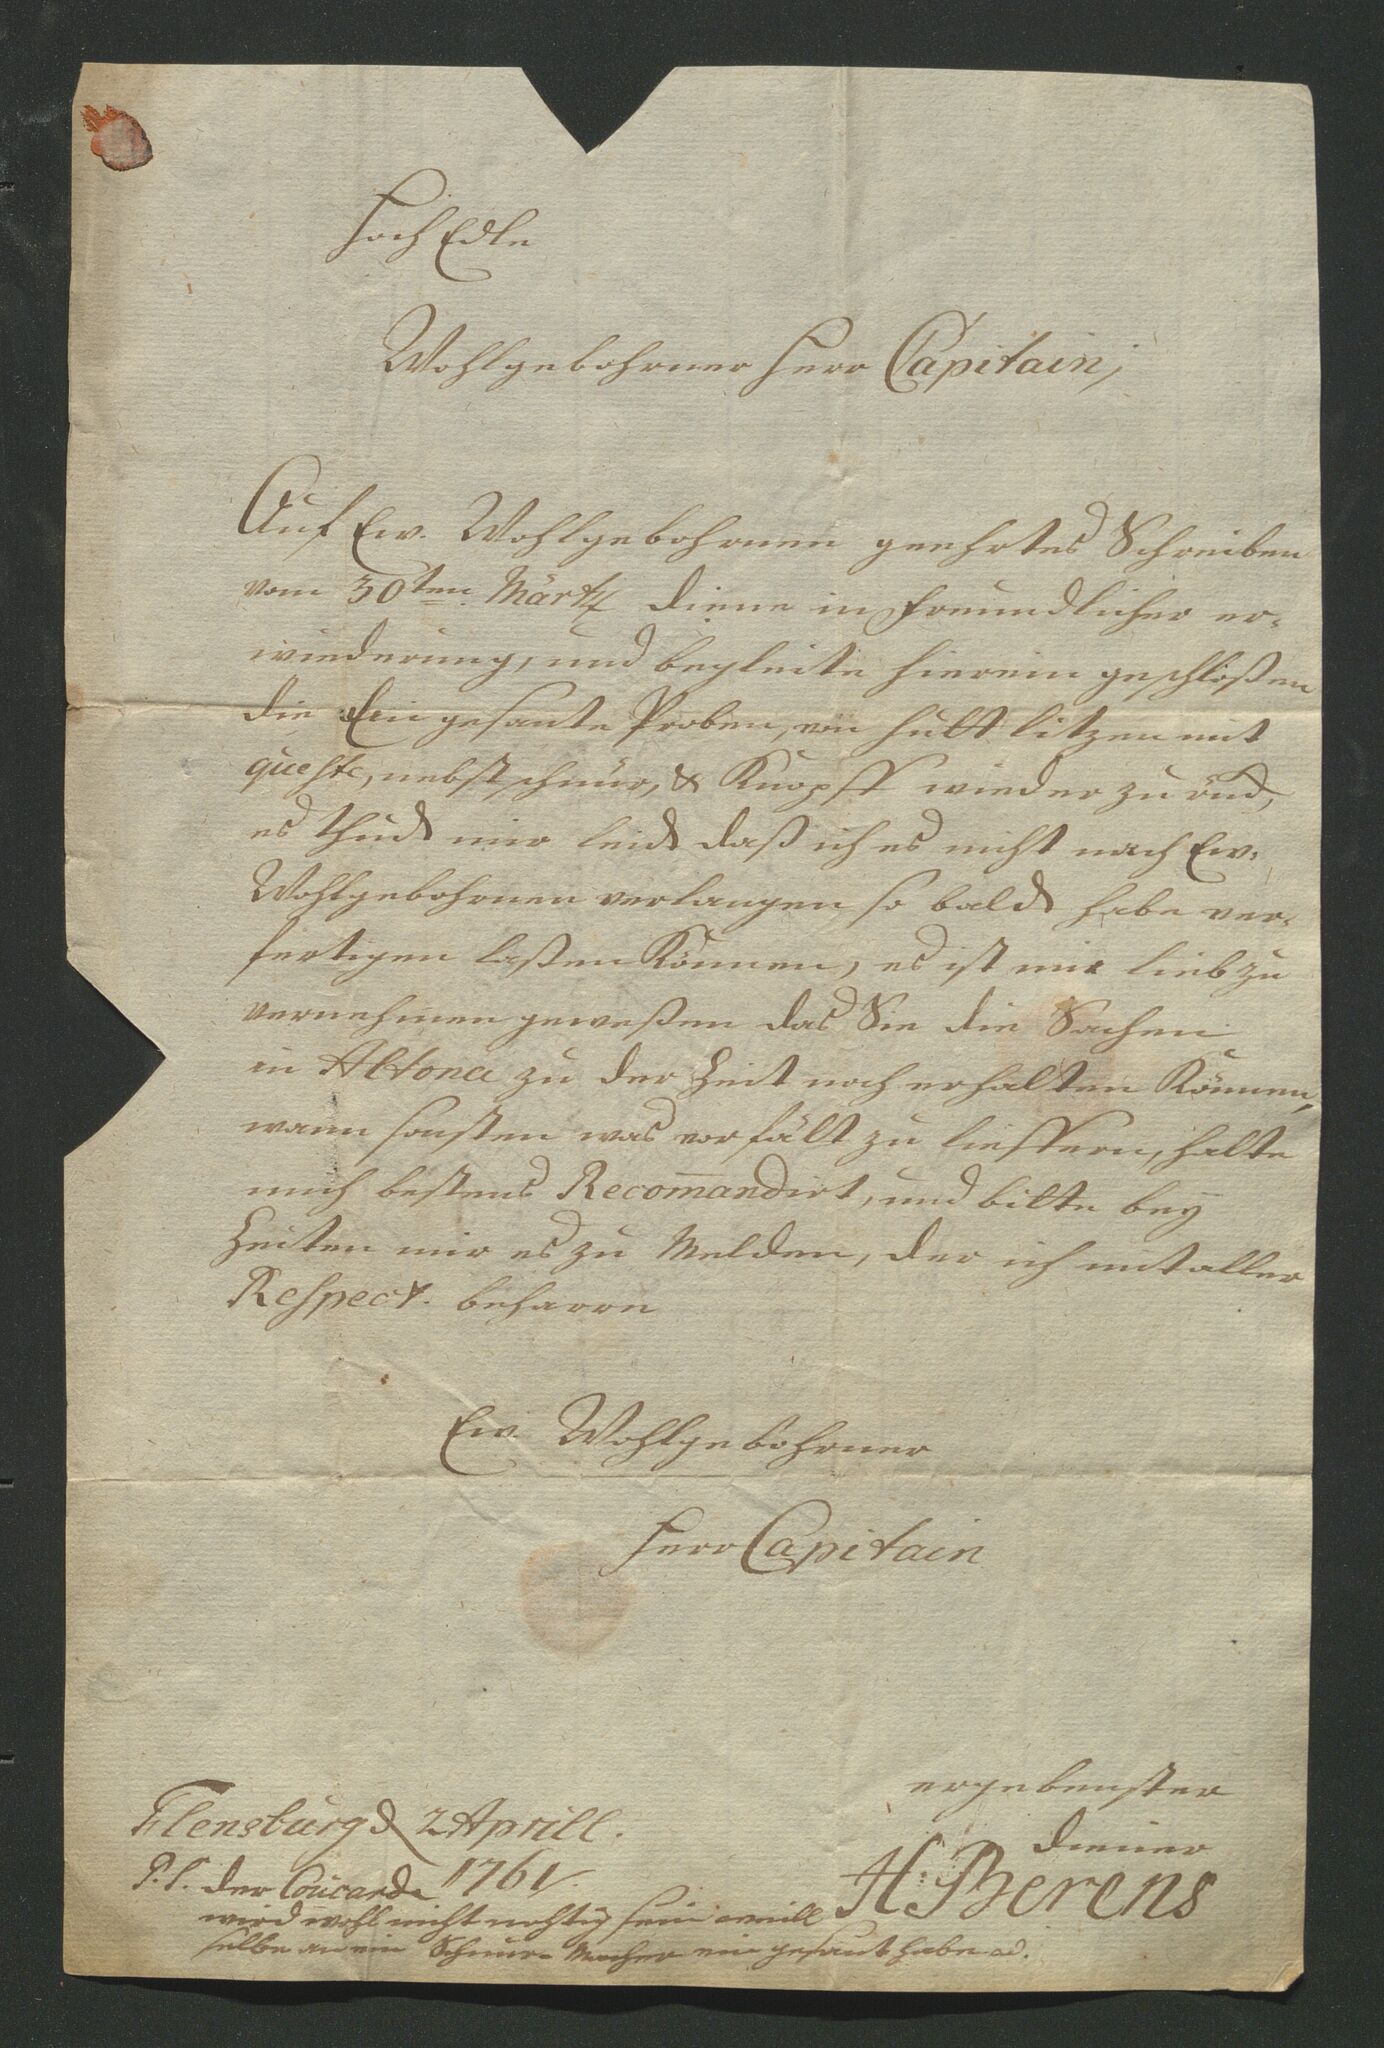 Hoch Edle
Wohlgebohrner Herr Capitain,
Auf Ew. Wohlgebohrnen geehrtes Schreiben
vom 30ten Märtz diene in freundlicher er-
wiederung, und begleite hierein geschloßen
die Ein gesante Proben, von hutt litzen mit
queste, nebst schnur, & Knopff wieder zu rück,
es thud mir leid daß ich es nicht nach Ew.
Wohlgebohrnen verlangen so bald habe ver-
fertigen laßen Können, es ist mir lieb zu
vernehmen geweßen das Sie die Sachen
in Altona zu der Zeit noch erhalten Können,
wann sonsten was vorfält zu lieffern, halte
mich bestens Recomandirt, und bitte bey
Zeiten mir es zu Melden, der ich mit aller
Respect. beharre
Ew. Wohlgebohrner
Herr Capitain
ergebenster
diener
H: Berens
Flensburg d 2 Aprill.
1761.
P.S. der Coucarde
wird wohl nicht nohtig sein weill
selbe an ein Schnur-Macher ein gesant habe